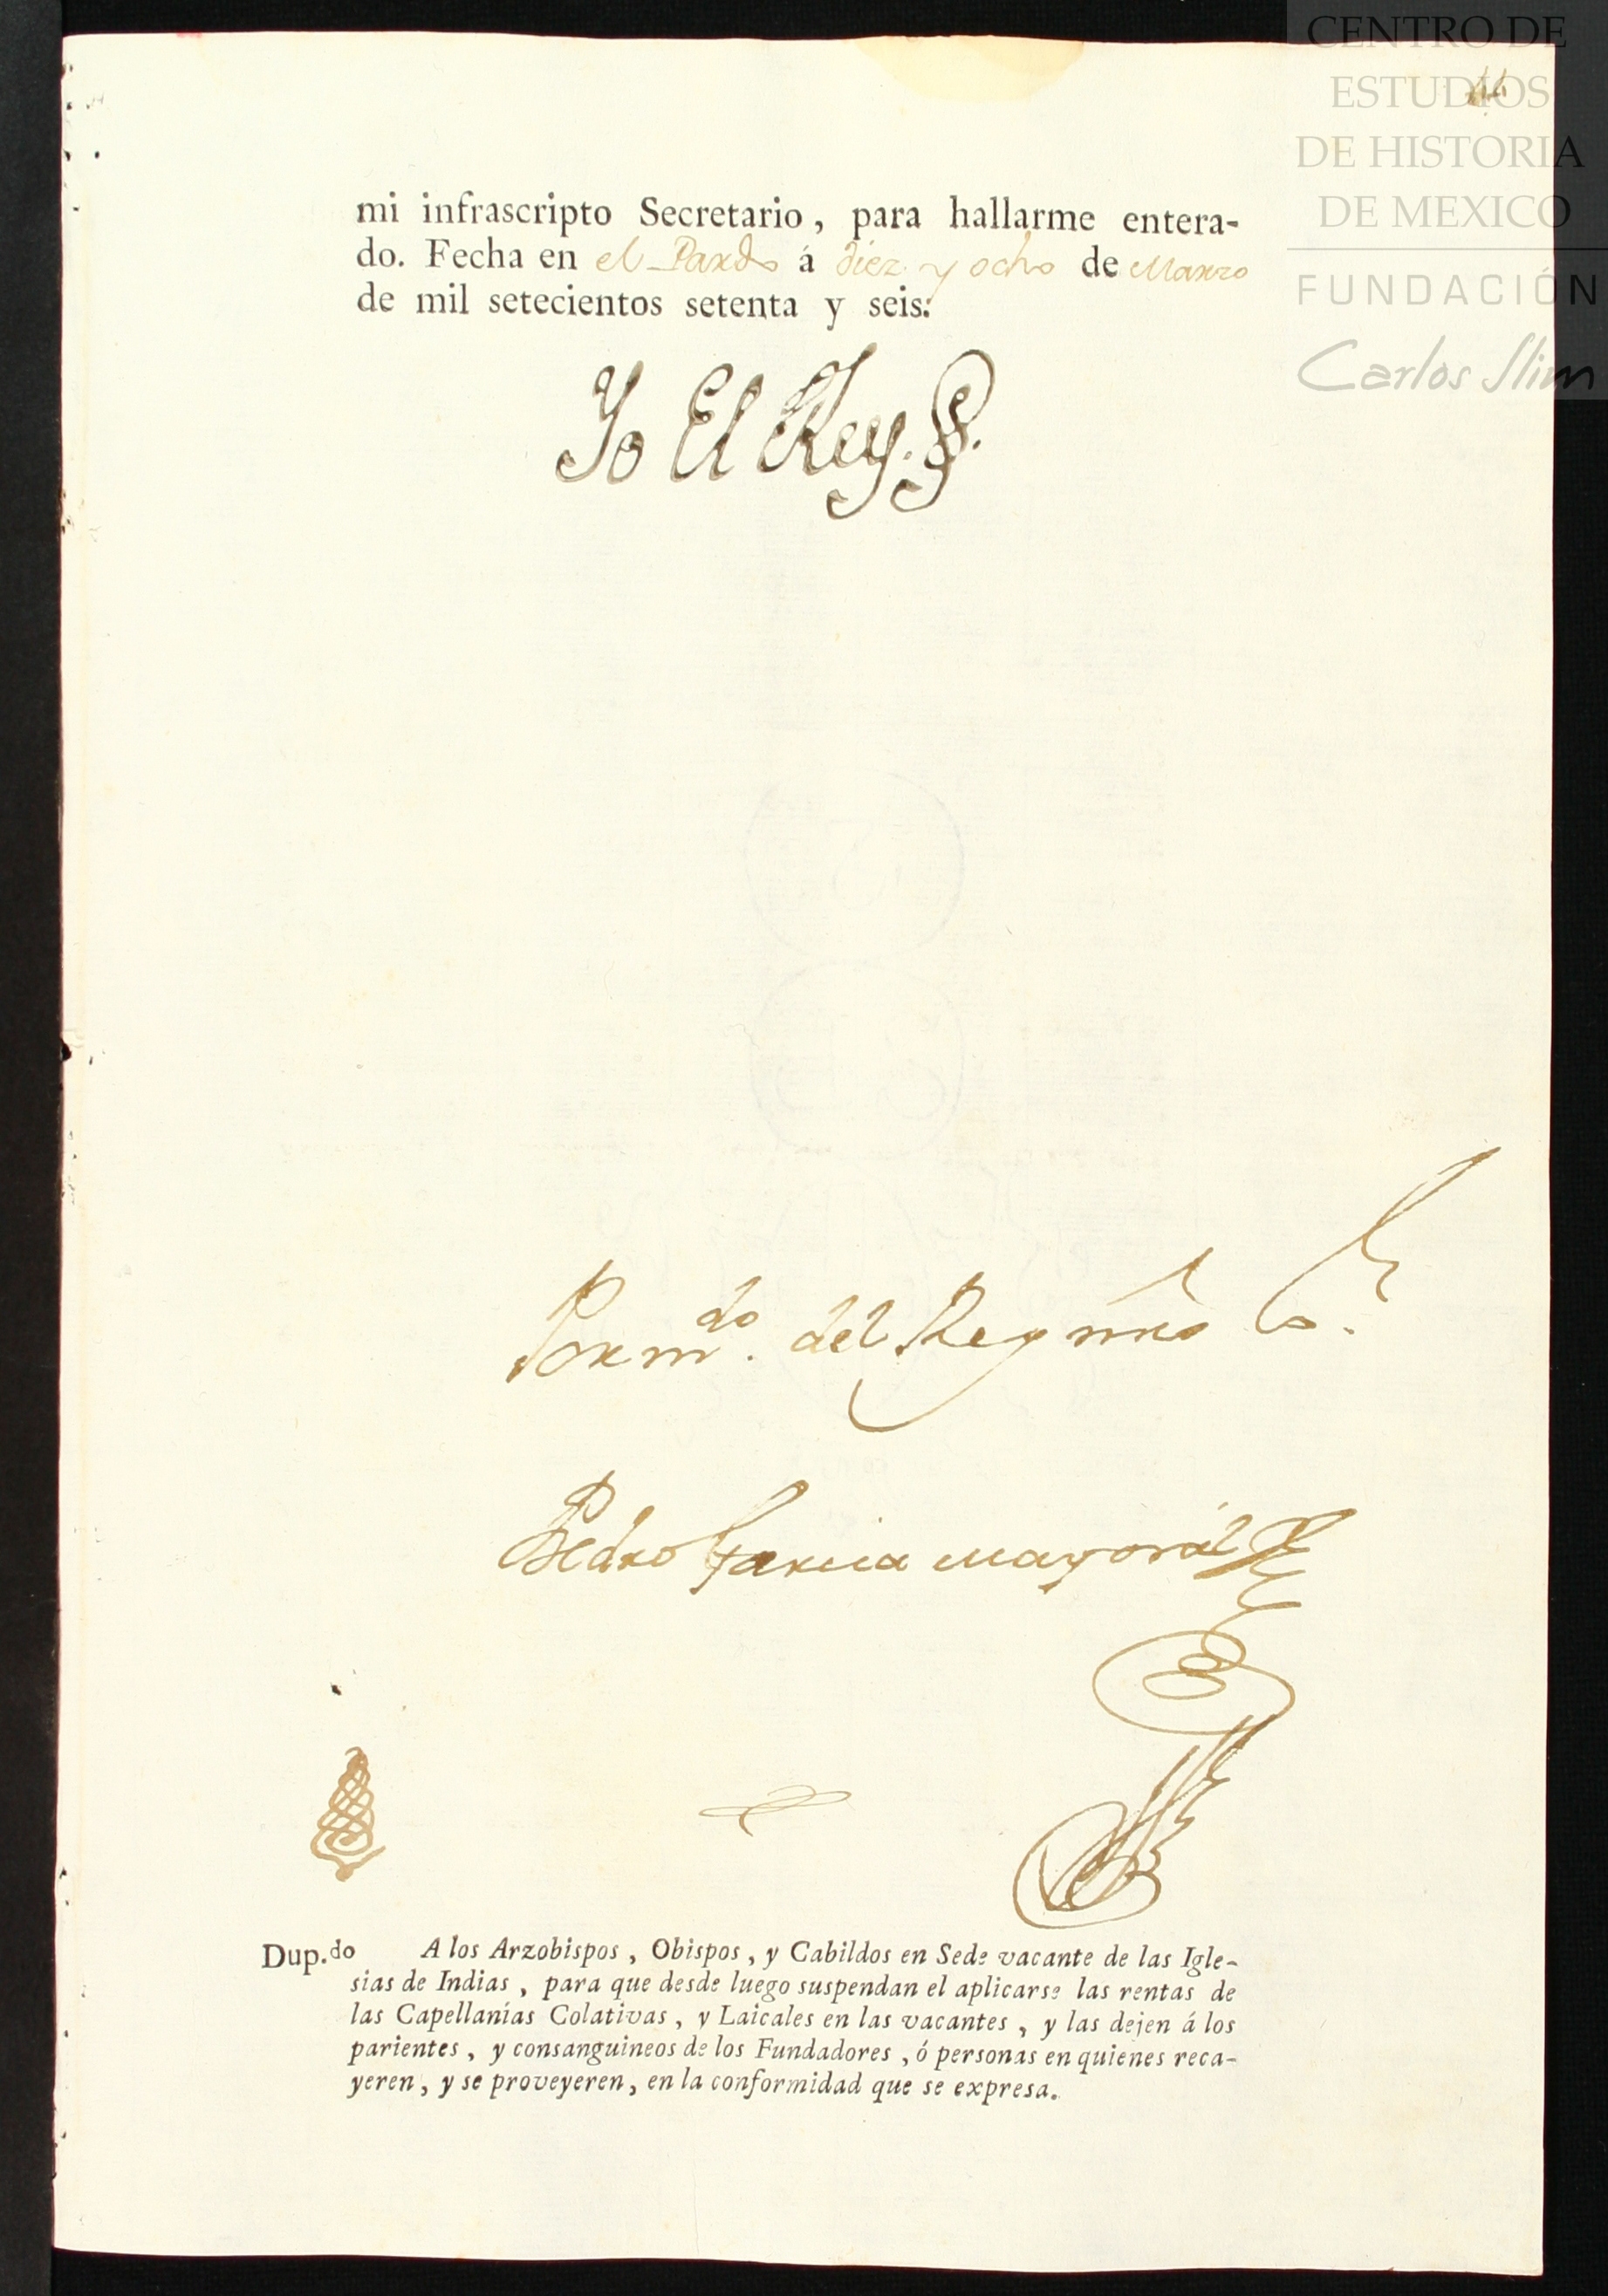 CENTRO DE
ESTUDIOS
DE HISTORIA
DE MEXICO
FUNDACIÓN
Carlos Slim
mi infrascripto Secretario, para hallarme entera-
do. Fecha en el Pardo á diez y ocho de Marzo
de mil setecientos setenta y seis.
Yo El Rey.
Por m.do del Rey nro S.or
Pedro Garcia Mayorál
Dup.do A los Arzobispos, Obispos, y Cabildos en Sede vacante de las Igle-
sias de Indias, para que desde luego suspendan el aplicarse las rentas de
las Capellanías Colativas, y Laicales en las vacantes, y las dejen á los
parientes, y consanguineos de los Fundadores, ó personas en quienes reca-
yeren, y se proveyeren, en la conformidad que se expresa.